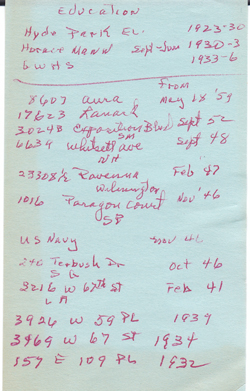 Education
Hyde Park El. 1923-30
Horace Mann Sept-June 1930-3
GWHS 1933-6
From
8607 Aura May 18 '59
17623 Lanark
3024B Exposition Blvd Sept 52
SM
6639 Whitsett Ave Sept 48
NH
23308½ Ravenna Feb '47
Wilmington
1016 Paragon Court Nov '46
SP
US Navy Nov 46
240 Terbush Dr Oct 46
3216 W 67th St Feb 41
LA
3926 W 59 PL 1939
3469 W 67 ST 1934
557 E 109 PL 1932